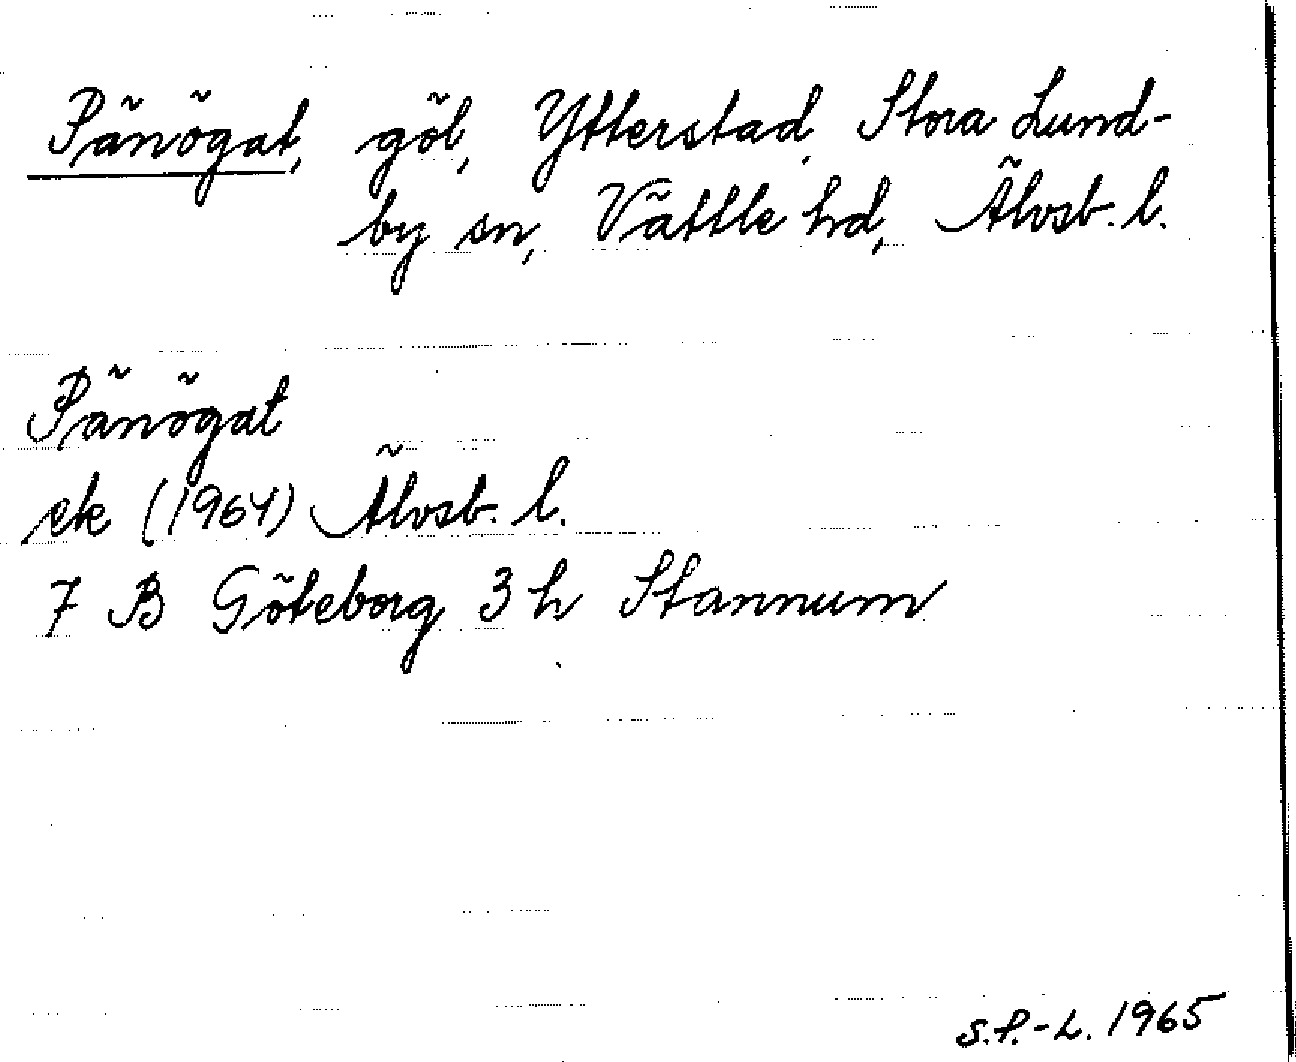 Pänögat, göl, Ytterstad, Stora Lund-
by sn, Vättle hd, Älvsb. l.
Pänögat
ek (1964) Älvsb. l.
7 B Göteborg 3 h Stannum
S.P.-L. 1965